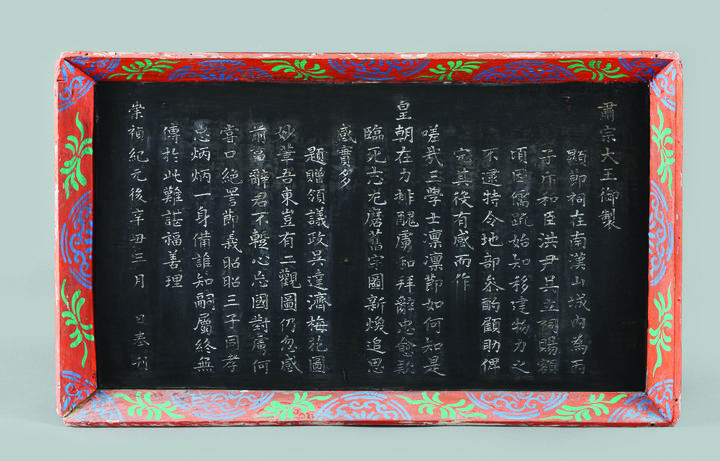 肅宗大王御製
顯節祠在南漢山城內為丙
子斥和臣洪尹吳立祠賜額
頃因儒䟽始知移建物力之
不逮特令地部參酌顧助俾
完其後有感而作
嗟哉三學士凛凛節如何知是
皇朝在力排醜虜和拜辭忠愈款
臨死志尤磨舊宇圖新煥追思
感實多
題贈領議政吳達濟梅花圖
妙筆吾東豈有二觀圖仍忽感
前留辭君不暫心忘國對虜何
嘗口絶罵節義昭昭三子同孝
忠炳炳一身備誰知嗣屬終無
傳於此難諶福善理
崇禎紀元後辛丑三月 日奉刊